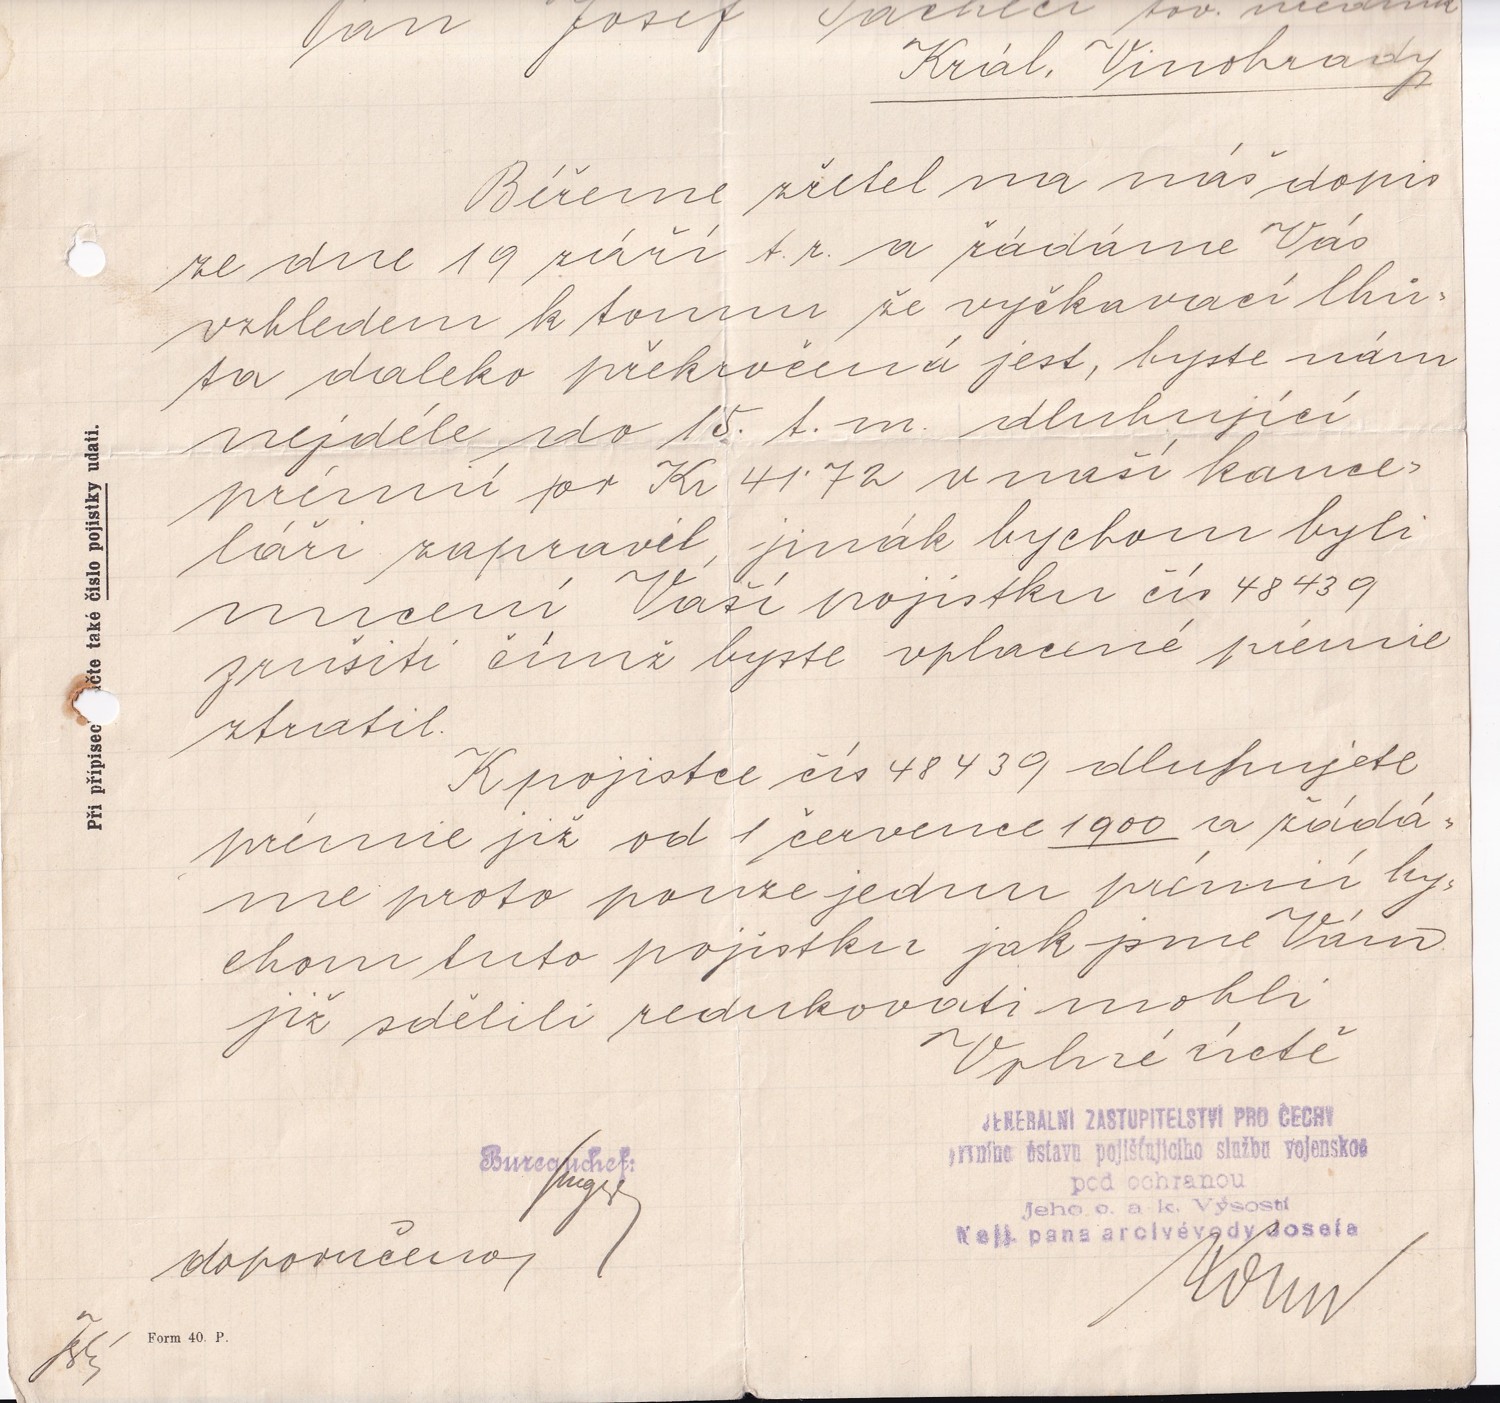 Pan Josef
Král. Vinohrady
Béřeme zřetel na náš dopis
ze dne 19 září t. r. a žádáme Vás
vzhledem k tomu že vyčkavací lhů-
ta daleko překročená jest, byste nám
nejdéle do 15. t. m. dluhující
prémii pr Kr 41·72 v naší kance-
láři zapravil, jinák bychom byli
nuceni Vaší pojistku čís 48439
zrušiti čímž byste vplacené prémie
ztratil.
K pojistce čís 48439 dluhujete
prémie již od 1 července 1900 a žádá-
me proto pouze jednu prémii by-
chom tuto pojistku jak jsme Vám
již sdělili redukovati mohli
V plné úctě
JENERALNI ZASTUPITELSTVÍ PRO ČECHY
ústavu pojišťujícího službu vojenskou
pod ochranou
Jeho c. a k. Výsosti
Nejj. pana arcivévody Josefa
Bureauchef:
doporučeno
Form 40. P.
Při přípisec čte také číslo pojistky udati.